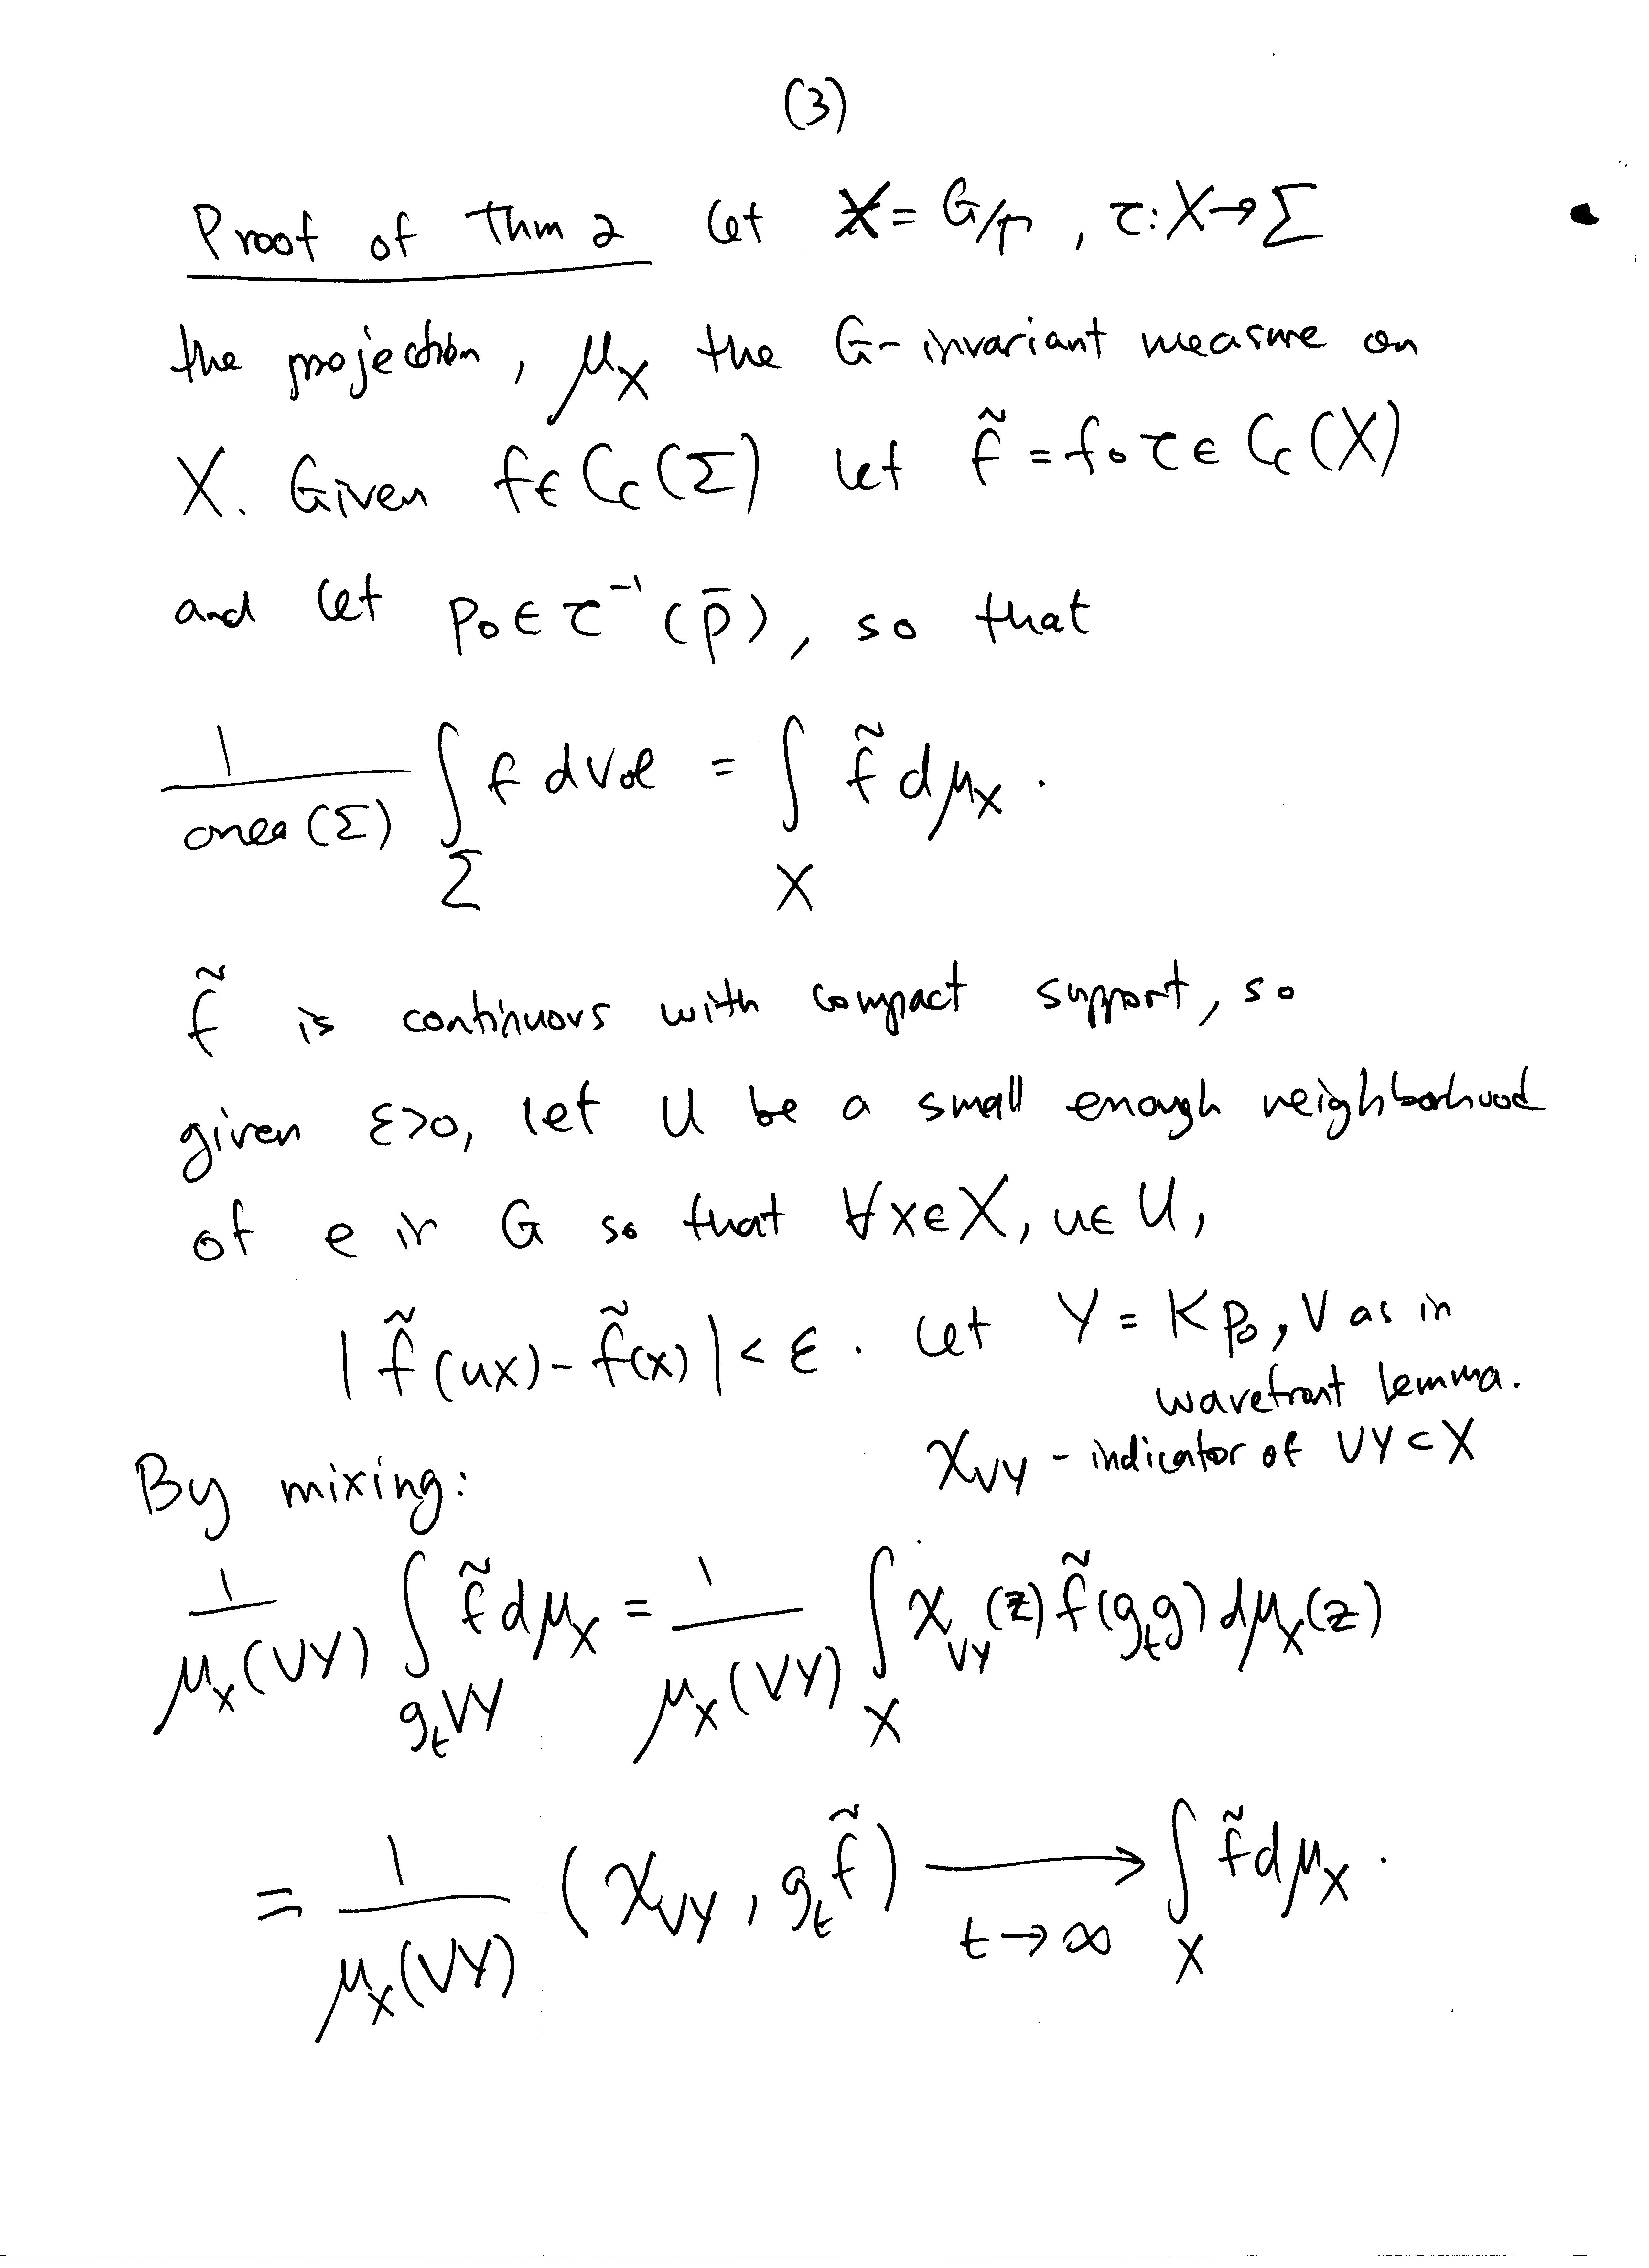 (3)
Proof of Thm 2 Let X = G/Γ, τ: X → Σ
the projection, μ_X the G-invariant measure on
X. Given f ∈ C_c(Σ) let f̃ = f∘τ ∈ C_c(X)
and let p₀ ∈ τ⁻¹(p̄), so that
1/area(Σ) ∫_Σ f dvol = ∫_X f̃ dμ_X.
f̃ is continuous with compact support, so
given ε>0, let U be a small enough neighborhood
of e in G so that ∀x∈X, u∈U,
|f̃(ux) - f̃(x)| < ε. Let Y = Kp₀, V as in
wavefront lemma.
χ_VY - indicator of VY ⊂ X
By mixing:
1/μ_X(VY) ∫_{g_t VY} f̃ dμ_X = 1/μ_X(VY) ∫_X χ_VY(z) f̃(g_t g) dμ_X(z)
= 1/μ_X(VY) (χ_VY, g_t f̃) ⟶_{t→∞} ∫_X f̃ dμ_X.